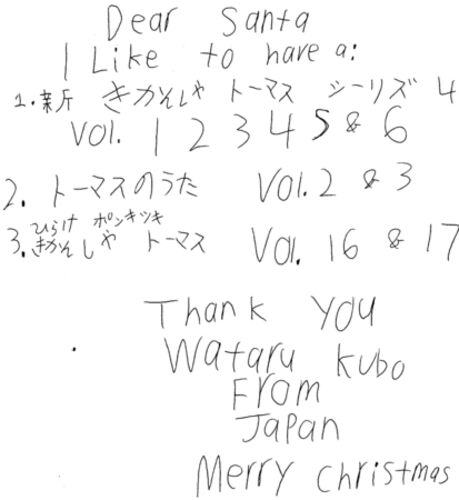 Dear Santa
I Like to have a:
1. 新 きかんしゃ トーマス シーリズ 4
Vol. 1 2 3 4 5 & 6
2. トーマスのうた Vol. 2 & 3
ひらけ ポンキッキ
3. きかんしゃ トーマス Vol. 16 & 17
Thank You
Wataru Kubo
From
Japan
Merry Christmas